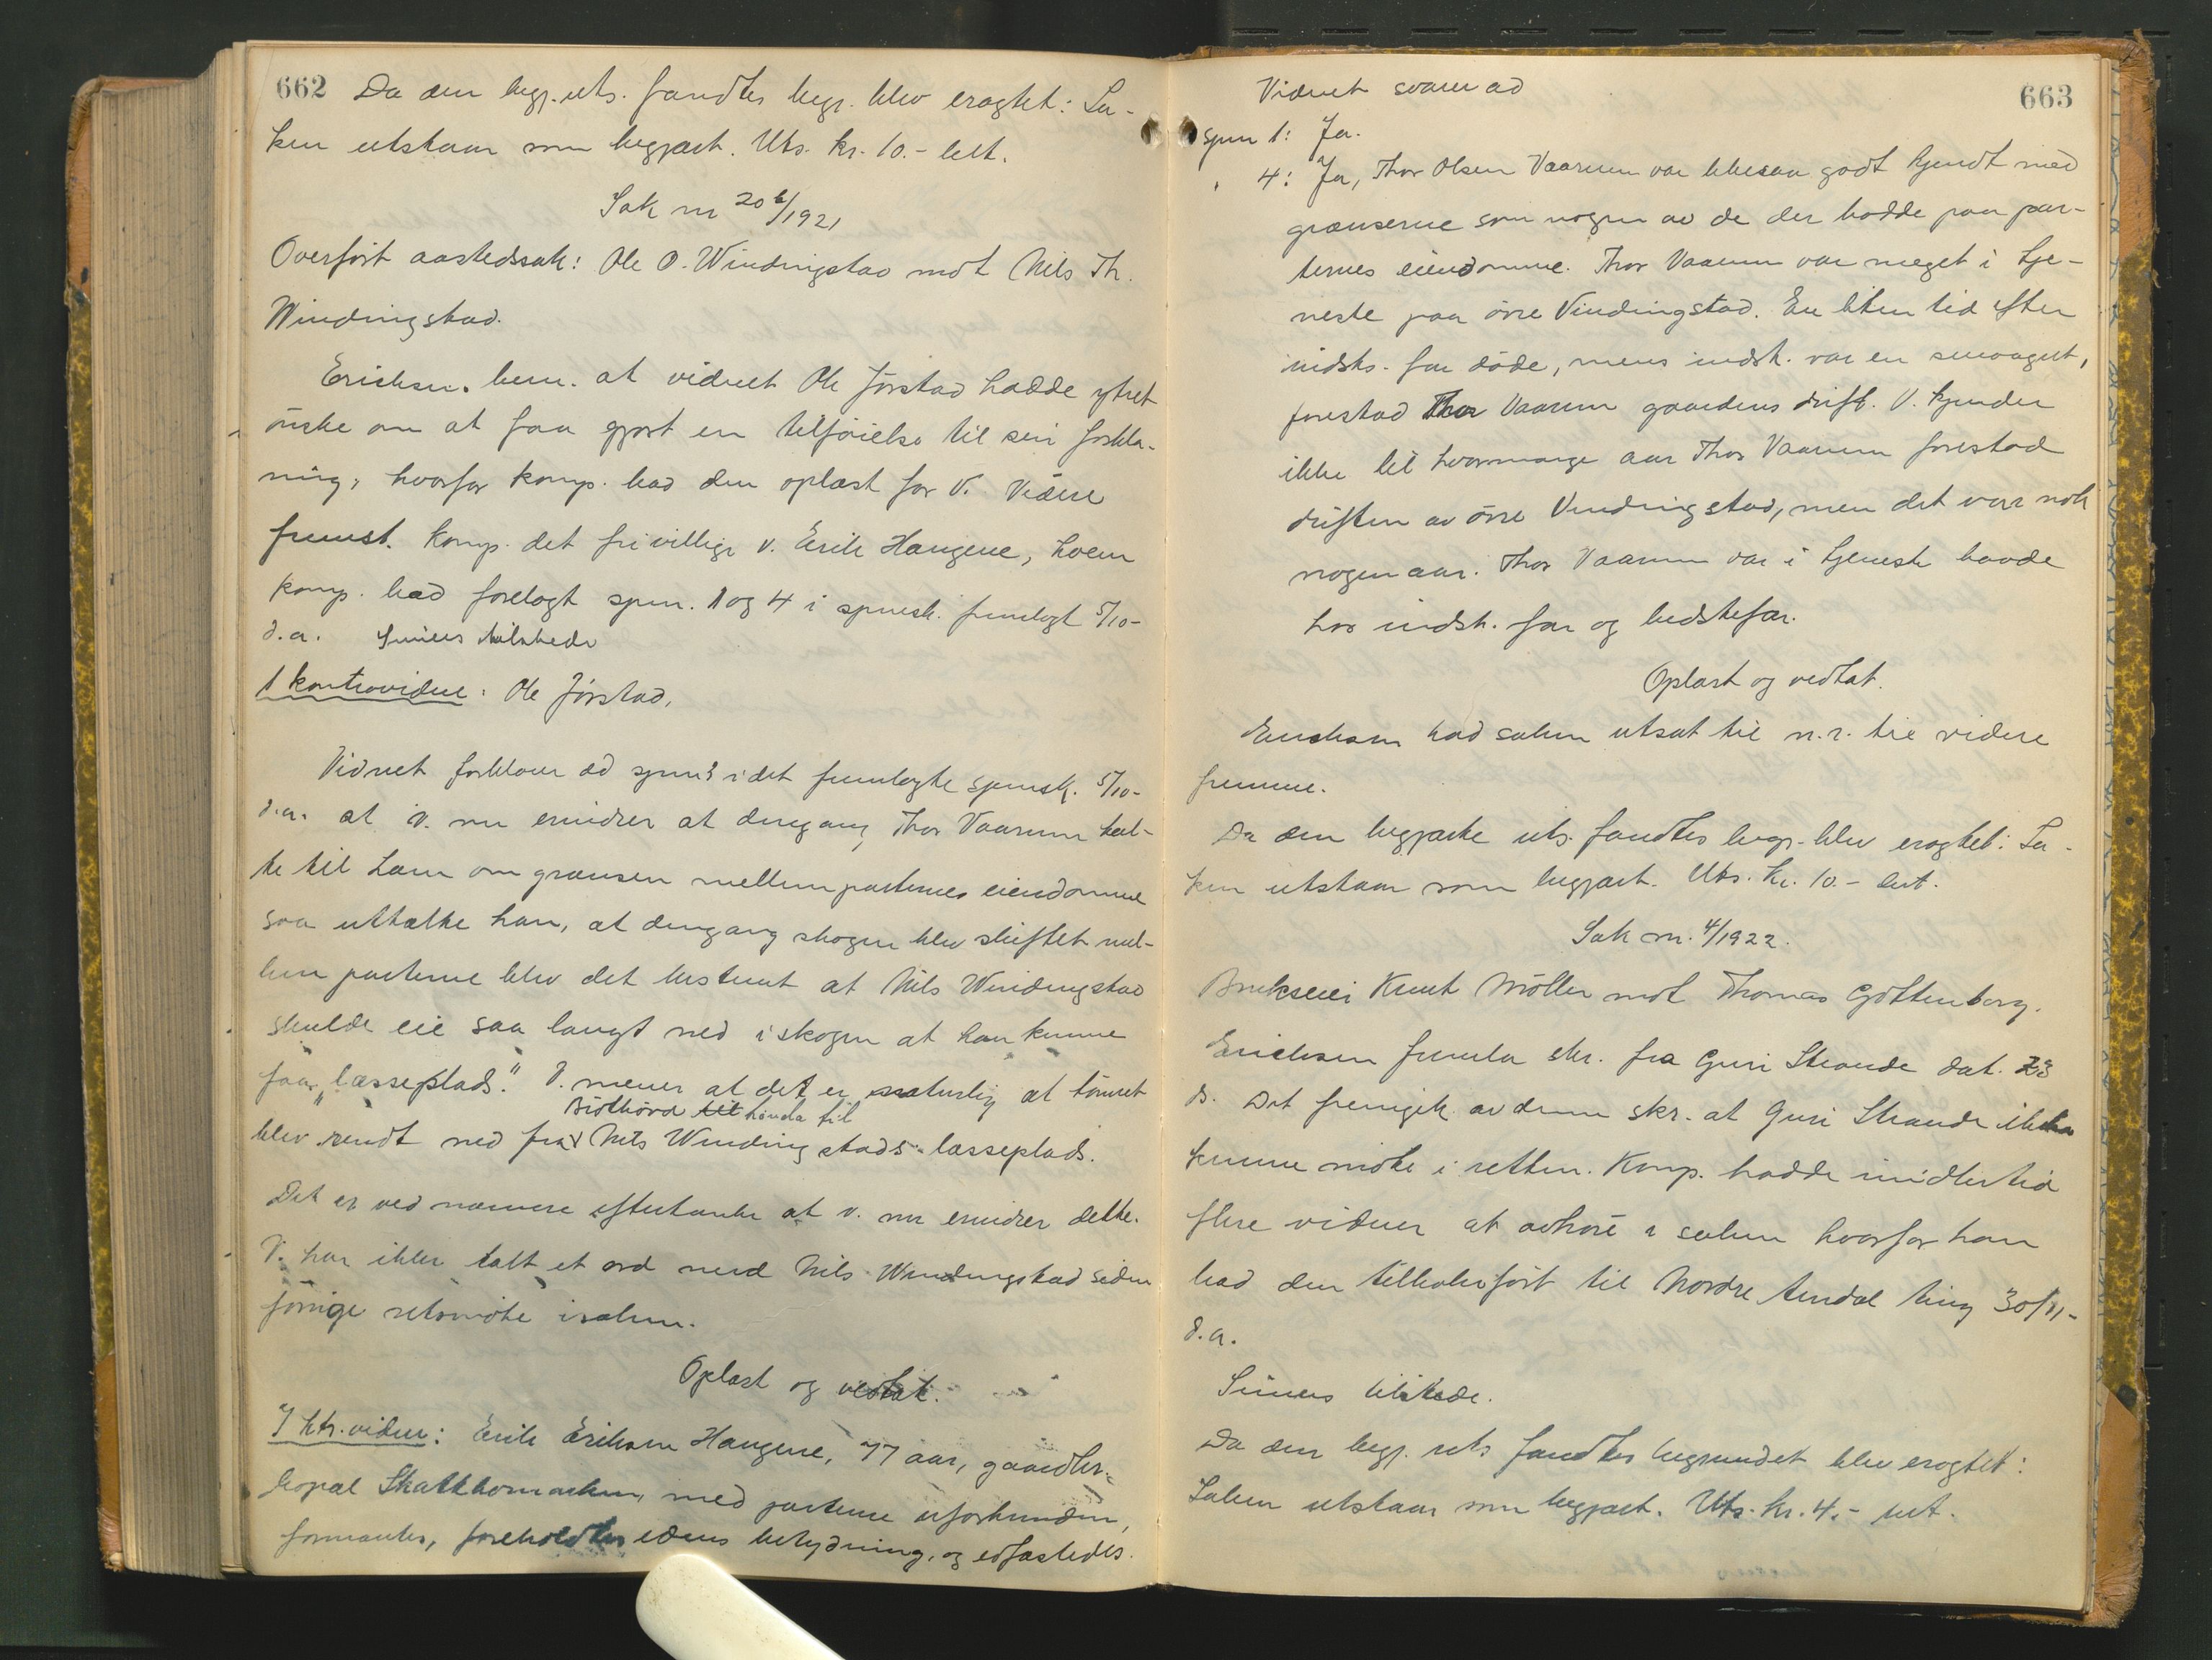 662 Da den begj. uts. fandtes begr. blev eragtet: Sa-
ken utstaar som begjært. Uts. kr. 10.- bet.
Sak nr 20 b/1921
Overført aastedssak: Ole O. Windingstad mot Nils Th.
Windingstad.
Erichsen. bem. at vidnet Ole Jørstad hadde ytret
ønske om at faa gjort en tilføielse til sin forkla-
ring, hvorfor komp. bad den oplæst for V. Videre
fremst. komp. det frivillige v. Erik Haugene, hvem
komp. bad forelagt spm. 1 og 4 i spmsk. fremlagt 5/10-
d.a. Simers tilstede
1 kontravidne: Ole Jørstad,
Vidnet forklarer ad spm 3 i det fremlagte spmsk. 5/10-
d.a. at V. nu erindrer at dengang Thor Vaarum tal-
te til ham om grænsen mellem parternes eiendomme
saa uttalte han, at dengang skogen blev skiftet mel-
lem parterne blev det bestemt at Nils Windingstad
skulde eie saa langt ned i skogen at han kunne
faa "læsseplads." V. mener at det er naturlig at tømret
Bjølhörd til hinda til
blev rendt ned fra Nils Windingstads læsseplads.
Det er ved nærmere eftertanke at v. nu erindrer dette.
V. har ikke talt et ord med Nils Windingstad siden
forrige retsmøte i saken.
Oplæst og vedtat.
7 ktr. vidne: Erik Eriksen Haugene, 77 aar, gaardbr.
bopæl Skatkbomarken, med parterne uforbunden,
formantes, foreholdtes edens betydning, og edfæstedes.
Vidnet svarer ad 663
spm 1: Ja.
" 4: Ja, Thor Olsen Vaarum var likesaa godt kjendt med
grænserne som nogen av de der bodde paa par-
ternes eiendomme. Thor Vaarum var meget i tje-
neste paa øvre Vindingstad. En liten tid efter
indsts. far døde, mens indst. var en smaagut,
forestod Thor Vaarum gaardens drift. V. kjender
ikke til hvormange aar Thor Vaarum forestod
driften av øvre Vindingstad, men det var nok
nogen aar. Thor Vaarum var i tjeneste baade
hos indst. far og bedstefar.
Oplæst og vedtat.
Erichsen bad saken utsat til n.r. til videre
fremme.
Da den begjærte uts. fandtes begr. blev eragtet: Sa-
ken utstaar som begjært. Uts. kr. 10.- bet.
Sak nr. 4/1922.
Brukseier Knut Møller mot Thomas Gottenborg.
Erichsen fremla skr. fra Guri Strande dat. 23
ds. Det fremgik av denne skr. at Guri Strande ikke
kunne møte i retten. Komp. hadde imidlertid
flere vidner at avhøre i saken hvorfor han
bad den tilbakeført til Nordre ting 30/11-
d.a.
Simers tilstede.
Da den begj. uts fandtes begrundet blev eragtet:
Saken utstaar som begjært. Uts. kr. 4,- bet.